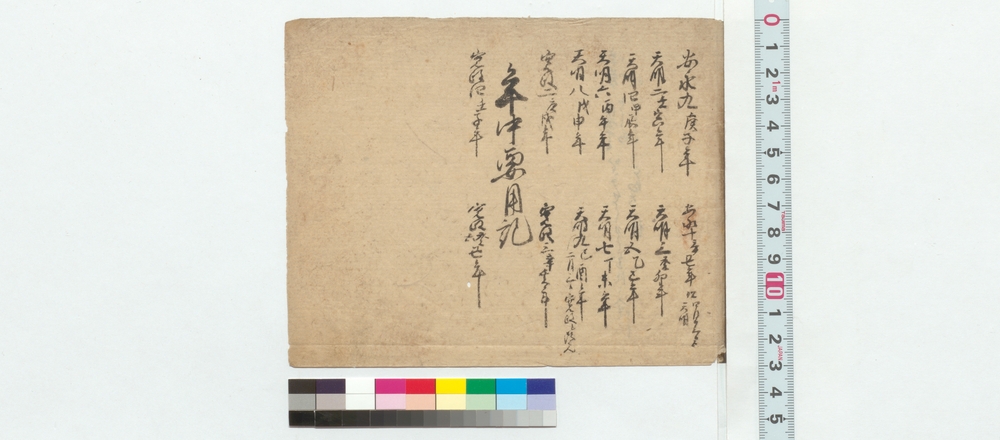 安永九庚子年
天明二壬寅年
天明三癸卯年
天明四甲辰年
天明五乙巳年
天明六丙午年
天明七丁未年
天明八戊申年
天明九己酉年
寛政二庚戌年
寛政三辛亥年
年中要用記
寛政四壬子年
0 1 2 3 4 5 6 7 8 9 10 1 2 3 4 5
1m
JAPAN